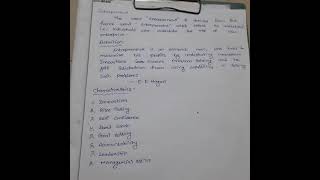 Entrepreneur
The word "Entrepreneur" is derived from the
french word Entreprendre which refers to undertake
i.e. individuals who undertake the risk of new
enterprise.
Definition
Entrepreneur is an economic man, who tries to
maximize his profits by
Innovations
problem solving and he
gets satisfaction from using capability in solving
Such Problems.
Characteristics:-
1. Innovation
2. Risk Taking
3. Self Confidence
4. Hard Work
5. Goal Setting
6. Accountability
7. Leadership
8. Managerial Skills